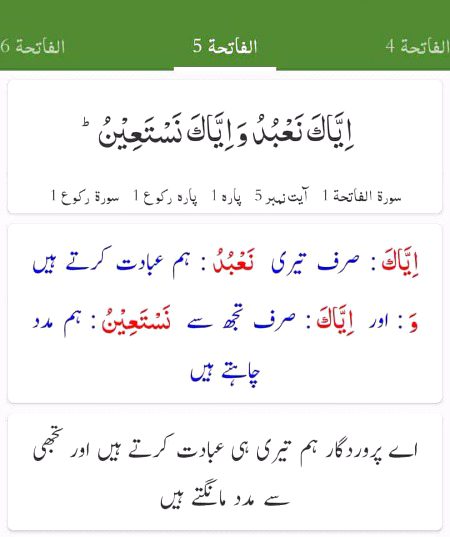 الفاتحة 4 الفاتحة 5 الفاتحة 6
اِيَّاكَ نَعْبُدُ وَ اِيَّاكَ نَسْتَعِيْنُ ؕ
سورۃ الفاتحة 1 آیت نمبر 5 پارہ 1 پارہ رکوع 1 سورۃ رکوع 1
اِيَّاكَ : صرف تیری نَعْبُدُ : ہم عبادت کرتے ہیں
وَ : اور اِيَّاكَ : صرف تجھ سے نَسْتَعِيْنُ : ہم مدد
چاہتے ہیں
اے پروردگار ہم تیری ہی عبادت کرتے ہیں اور تجھی
سے مدد مانگتے ہیں